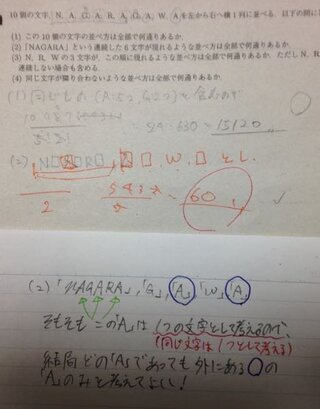 10 個の文字、N, A, G, A, R, A, G, A, W, A を左から右へ横 1 列に並べる。以下の問に
(1) この 10 個の文字の並べ方は全部で何通りあるか。
(2) 「NAGARA」という連続した 6 文字が現れるような並べ方は全部で何通りあるか。
(3) N, R, W の 3 文字が、この順に現れるような並べ方は全部で何通りあるか。ただし N, R,
連続しない場合も含める。
(4) 同じ文字が隣り合わないような並べ方は全部で何通りあるか。
(1) 同じもの (A:5コ, G:2コ) を含むので
24・630 = 15120
(2)
W, とし.
2
60
(2) 「NAGARA」,「G」,「A」「W」「A」
そもそもこの「A」は 1つの文字として考えるので、
(同じ文字は1つとして考える)
結局どの「A」であっても外にある○の
「A」のみと考えてよい!